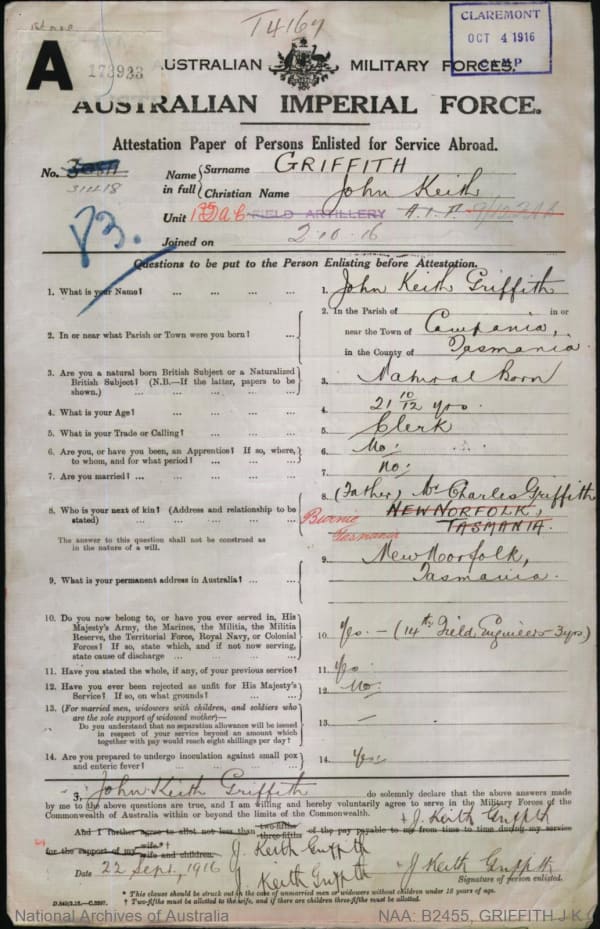 T4169
CLAREMONT
OCT 4 1916
CAMP
A
173933
AUSTRALIAN MILITARY FORCES.
AUSTRALIAN IMPERIAL FORCE.
Attestation Paper of Persons Enlisted for Service Abroad.
No. 31418
Name in full { Surname GRIFFITH
Christian Name John Keith
Unit FIELD ARTILLERY A.I.F.
Joined on 2.10.16
Questions to be put to the Person Enlisting before Attestation.
1. What is your Name? ... ... ... 1. John Keith Griffith
2. In or near what Parish or Town were you born? ... 2. In the Parish of in or
near the Town of Campania,
in the County of Tasmania.
3. Are you a natural born British Subject or a Naturalized
British Subject? (N.B.—If the latter, papers to be
shown.) ... ... ... ... 3. Natural Born
4. What is your Age? ... ... ... 4. 21 10/12 yrs.
5. What is your Trade or Calling? ... ... ... 5. Clerk
6. Are you, or have you been, an Apprentice? If so, where,
to whom, and for what period? ... ... ... 6. No:
7. Are you married? ... ... ... ... 7. No:
8. Who is your next of kin? (Address and relationship to be
stated) ... ... ... ... 8. (Father) Mr Charles Griffith
NEW NORFOLK,
TASMANIA.
Burnie
Tasmania
The answer to this question shall not be construed as
in the nature of a will.
9. What is your permanent address in Australia? ... ... 9. New Norfolk,
Tasmania.
10. Do you now belong to, or have you ever served in, His
Majesty's Army, the Marines, the Militia, the Militia
Reserve, the Territorial Force, Royal Navy, or Colonial
Forces? If so, state which, and if not now serving,
state cause of discharge ... ... ... 10. Yes. — (14th Field Engineers 3yrs)
11. Have you stated the whole, if any, of your previous service? 11. Yes
12. Have you ever been rejected as unfit for His Majesty's
Service? If so, on what grounds? ... ... 12. No:
13. (For married men, widowers with children, and soldiers who
are the sole support of widowed mother)—
Do you understand that no separation allowance will be issued
in respect of your service beyond an amount which
together with pay would reach eight shillings per day? 13. —
14. Are you prepared to undergo inoculation against small pox
and enteric fever? ... ... ... ... 14. Yes:
I, John Keith Griffith do solemnly declare that the above answers made
by me to the above questions are true, and I am willing and hereby voluntarily agree to serve in the Military Forces of the
Commonwealth of Australia within or beyond the limits of the Commonwealth.
+ J. Keith Griffith
And I further agree to allot not less than two-fifths three-fifths of the pay payable to me from time to time during my service
for the support of my wife.*† wife and children. J. Keith Griffith
Date 22 Sept, 1916 J. Keith Griffith + J Keith Griffith
Signature of person enlisted.
* This clause should be struck out in the case of unmarried men or widowers without children under 18 years of age.
† Two-fifths must be allotted to the wife, and if there are children three-fifths must be allotted.
National Archives of Australia NAA: B2455, GRIFFITH J K